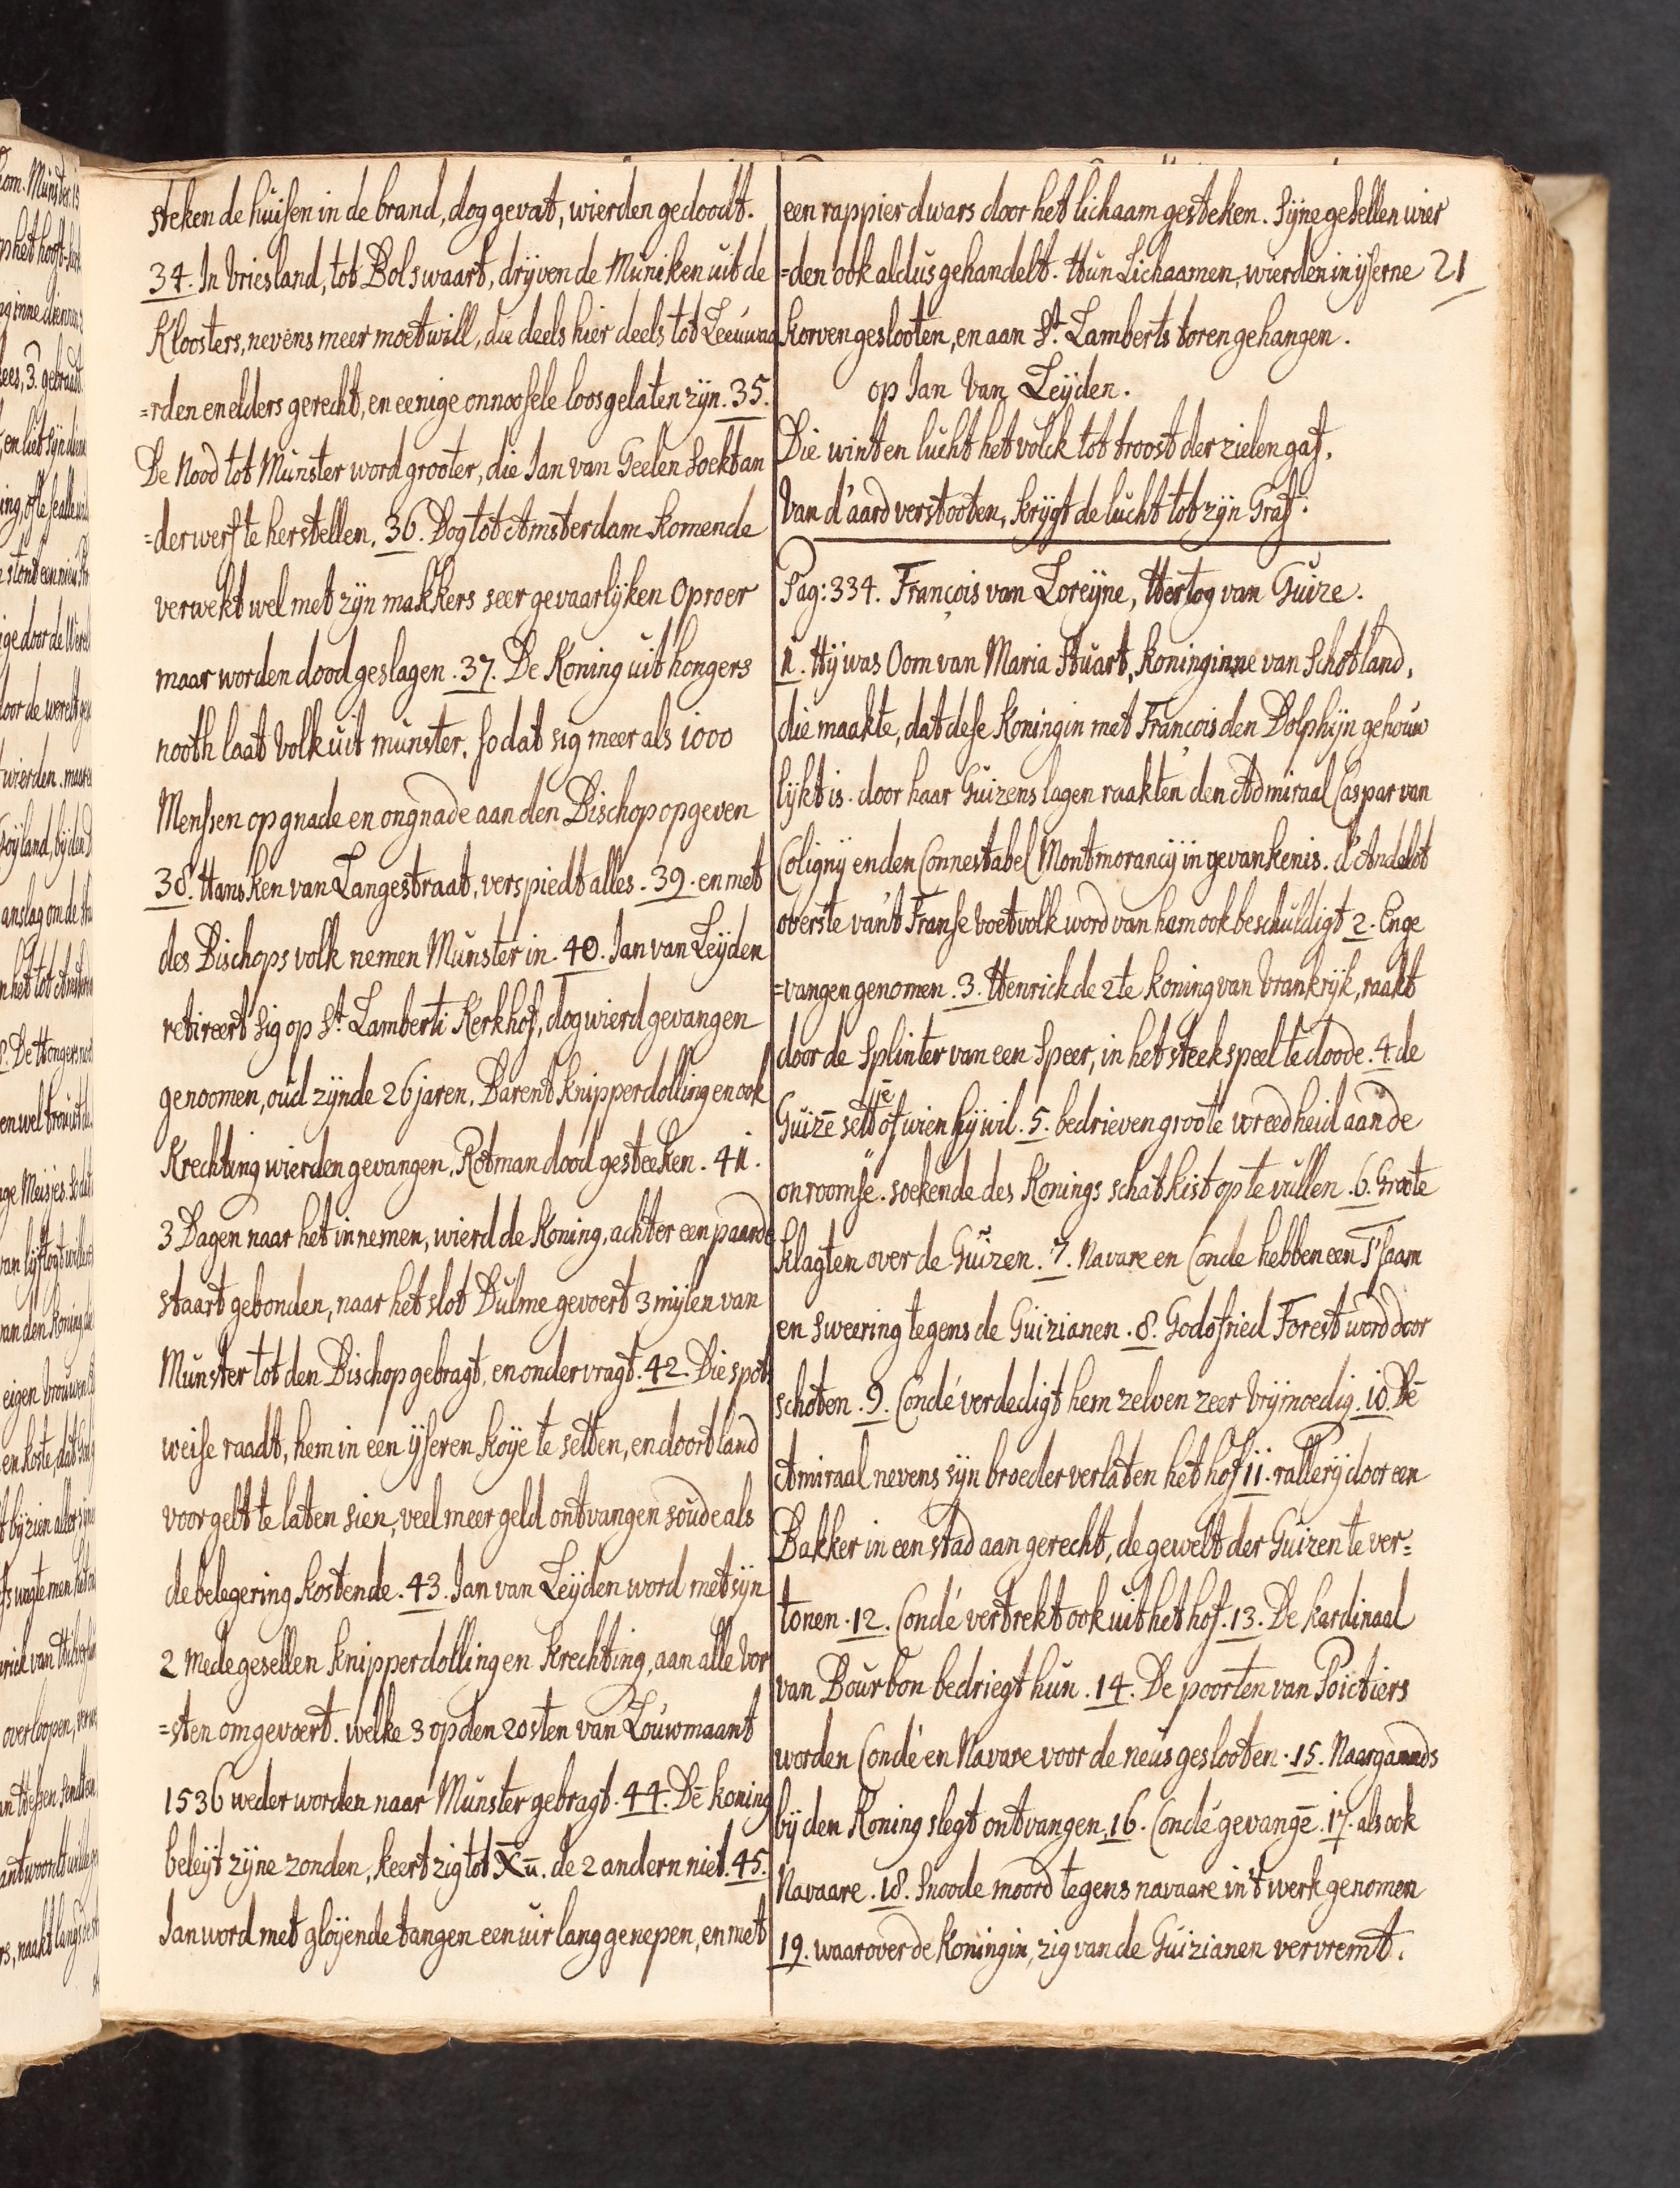 steken de huisen in de brand, dog gevat, wierden gedoodt.
34. In Vriesland, tot Bolswaart, dryven de Muniken uit de
Kloosters, nevens meer moetwill, die deels hier deels tot Leeuwaa
=rden en elders gerecht, en eenige onnoosele loosgelaten zyn. 35.
De Nood tot Munster word grooter, die Jan van Geelen soekt an
=derwerf te herstellen. 36. Dog tot Amsterdam komende
verwekt wel met zyn makkers seer gevaarlyken oproer
maar worden dood geslagen. 37. De Koning uit hongers
nooth laat Volk uit munster. so dat sig meer als 1000
Menssen op gnade en ongnade aan den Bischop opgeven
38. Hansken van Langestraat, verspiedt alles. 39. en met
des Bischops volk nemen Munster in. 40. Jan van Leyden
retireert sig op St. Lamberti Kerkhof, dog wierd gevangen
genoomen, oud zynde 26 jaren. Barent knipperdolling en ook
Krechting wierden gevangen, Rotman dood gesteeken. 41.
3 Dagen naar het innemen, wierd de Koning, achter een paarde
staart gebonden, naar het slot Dulme gevoert 3 mylen van
Munster tot den Bischop gebragt, en ondervragt. 42. Die spots
weise raadt, hem in een yseren koye te setten, en doort land
voor gelt te laten sien, veel meer geld ontvangen soude als
de belegering kostende. 43. Jan van Leyden word met syn
2 Medegesellen knipperdolling en krechting, aan alle Vor
=sten omgevoert. welke 3 op den 20sten van Louwmaant
1536 weder worden naar Munster gebragt. 44. De koning
beleyt zyne zonden, keert zig tot X̄ū. de 2 andern niet. 45.
Jan word met gloyende tangen een uir lang genepen, en met
een rappier dwars door het lichaam gesteken. Syne gesellen wier
=den ook aldus gehandelt. Hun Lichaamen, wierden in yserne 21
korven geslooten, en aan St. Lamberts toren gehangen.
op Jan Van Leyden.
Die wint en lucht het volck tot troost der zielen gaf,
Van d'aard verstooten, krygt de lucht tot zyn Graf.
Pag: 334. François van Loreyne, Hertog van Guize.
1. Hy was Oom van Maria Stuart, Koninginne van Schotland,
die maakte, dat dese Koningin met François den Dolphyn gehouw
lykt is. door haar Guizens lagen raakten den Admiraal Caspar van
Coligny en den Connestabel Montmorancy in gevankenis. d'Andelot
overste van't Franse voetvolk word van ham ook beschuldigt 2. En ge
=vangen genomen. 3. Henrick de 2te koning van Vrankryk, raakt
door de Splinter van een Speer, in het steekspeel te doode. 4 de
Guizē sett je of wien hy wil. 5. bedrieven groote wreedheid aan de
onroomse. soekende des Konings schatkist op te vullen. 6. Groote
klagten over de Guizen. 7. Navare en Conde hebben een T'saam
en sweering tegens de Guizianen. 8. Godofried Forest word door
schoten. 9. Condé verdedigt hem zelven zeer Vrymoedig. 10. De
Amiraal nevens syn broeder verlaten het hof 11. rallery door een
Bakker in een stad aan gerecht, de gewelt der Guizen te ver=
tonen. 12. Condé vertrekt ook uit het hof. 13. De kardinaal
van Bourbon bedriegt hun. 14. De poorten van Poictiers
worden Condé en Navare voor de neus geslooten. 15. Naargaands
by den Koning slegt ontvangen. 16. Condé gevangē. 17. als ook
Navaare. 18. Snoode moord tegens navaare in't werk genomen
19. waarover de Koningin, zig van de Guizianen vervremt.